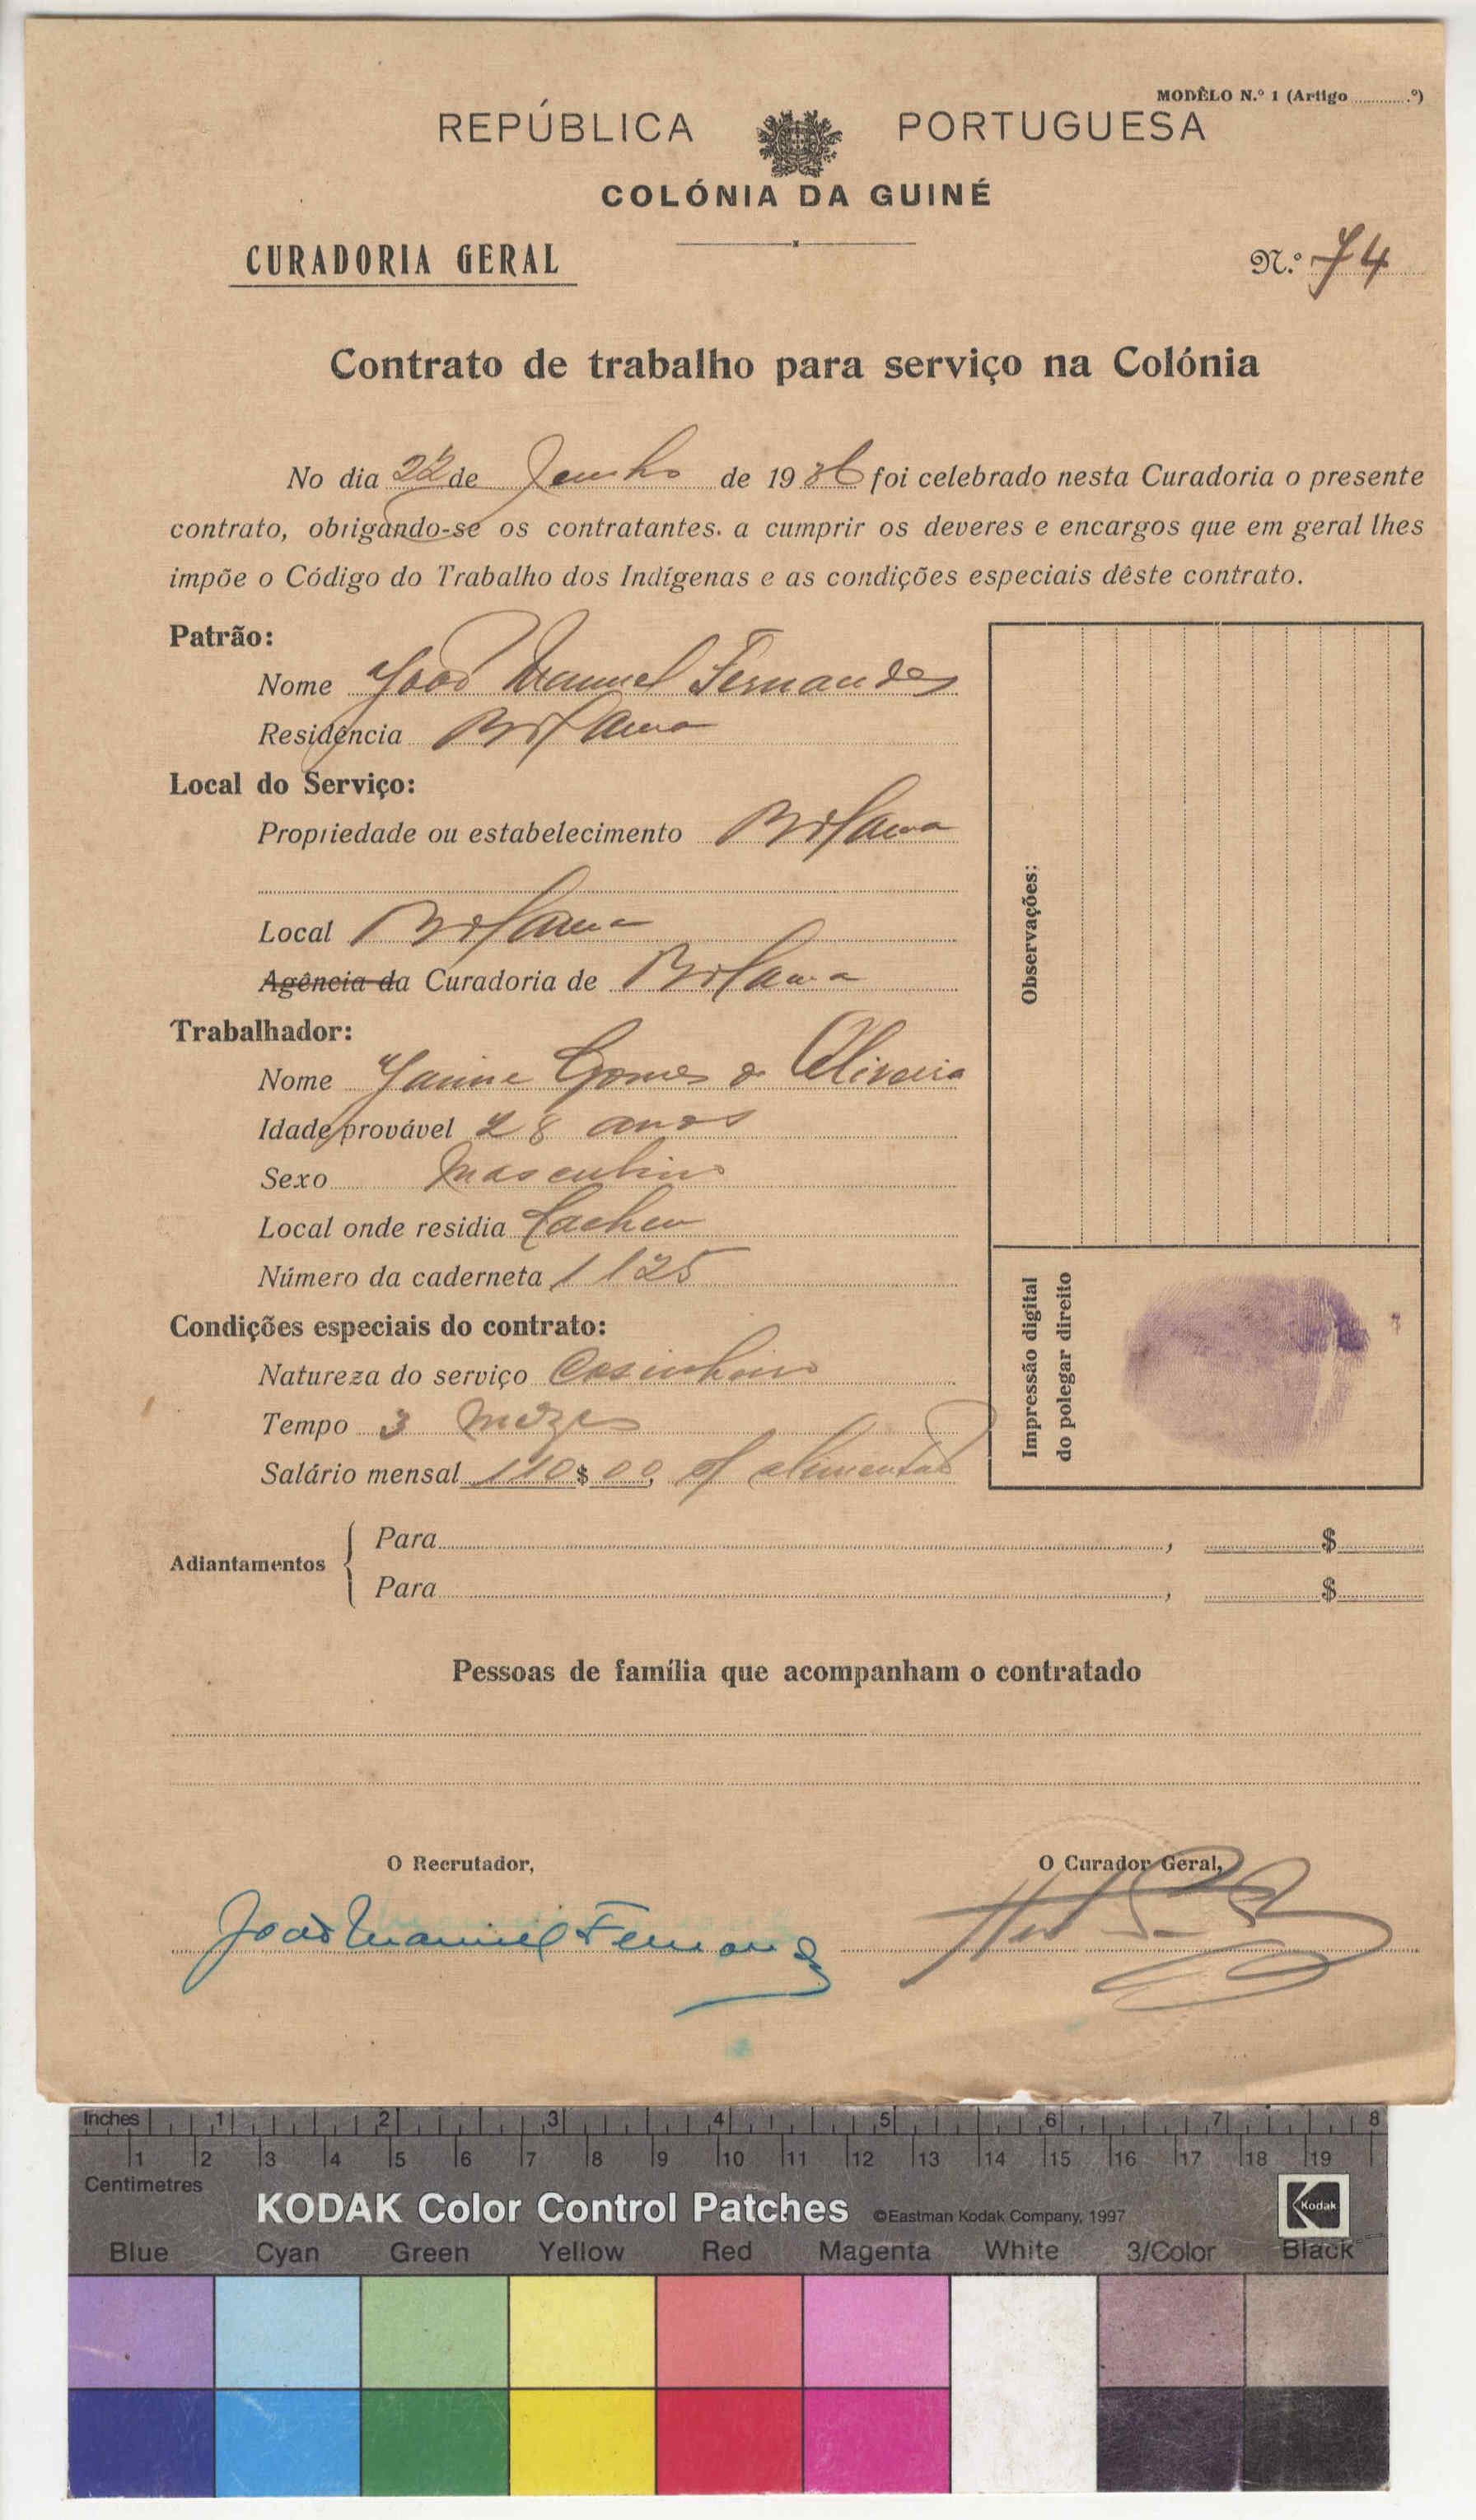 MODÊLO N.º 1 (Artigo ............º)
REPÚBLICA PORTUGUESA
COLÓNIA DA GUINÉ
CURADORIA GERAL
N.º 74
Contrato de trabalho para serviço na Colónia
No dia 22 de Junho de 1936 foi celebrado nesta Curadoria o presente
contrato, obrigando-se os contratantes. a cumprir os deveres e encargos que em geral lhes
impõe o Código do Trabalho dos Indígenas e as condições especiais dêste contrato.
Patrão:
Nome João Manuel Fernandes
Residência Bolama
Local do Serviço:
Propriedade ou estabelecimento Bolama
Local Bolama
Agência da Curadoria de Bolama
Trabalhador:
Nome Jaime Gomes de Oliveira
Idade provável 28 anos
Sexo Masculino
Local onde residia Cacheu
Número da caderneta 1125
Condições especiais do contrato:
Natureza do serviço Cosinheiro
Tempo 3 mezes
Salário mensal 110$00,
Observações:
Impressão digital
do polegar direito
Adiantamentos
Para , $
Para , $
Pessoas de família que acompanham o contratado
O Recrutador,
O Curador Geral,
João Manuel Fernandes
Inches 1 2 3 4 5 6 7 8
1 2 3 4 5 6 7 8 9 10 11 12 13 14 15 16 17 18 19
Centimetres
KODAK Color Control Patches ©Eastman Kodak Company, 1997 Kodak
Blue Cyan Green Yellow Red Magenta White 3/Color Black